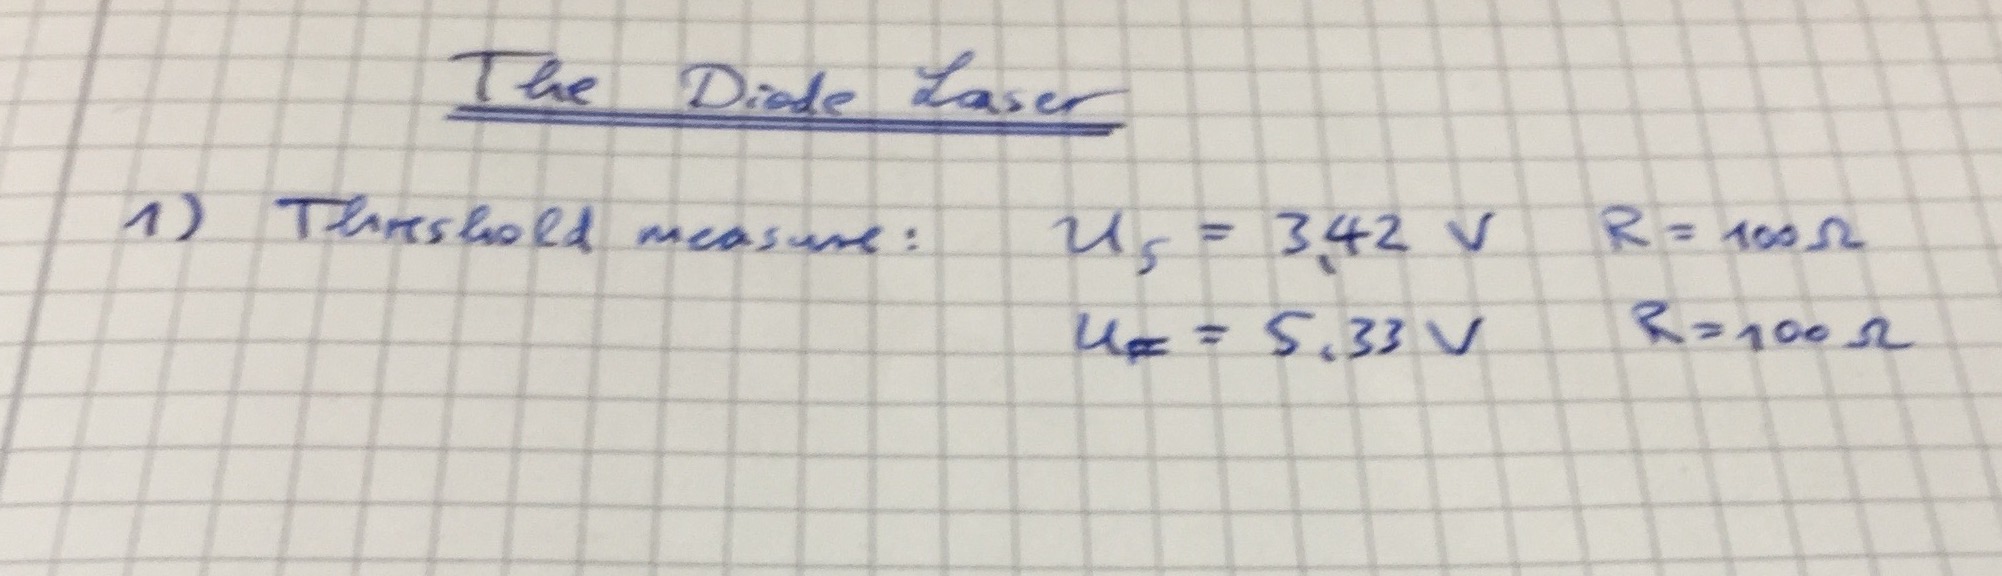 The Diode Laser
1) Threshold measure: U_S = 3,42 V R = 100 Ω
U = 5.33 V R = 100 Ω